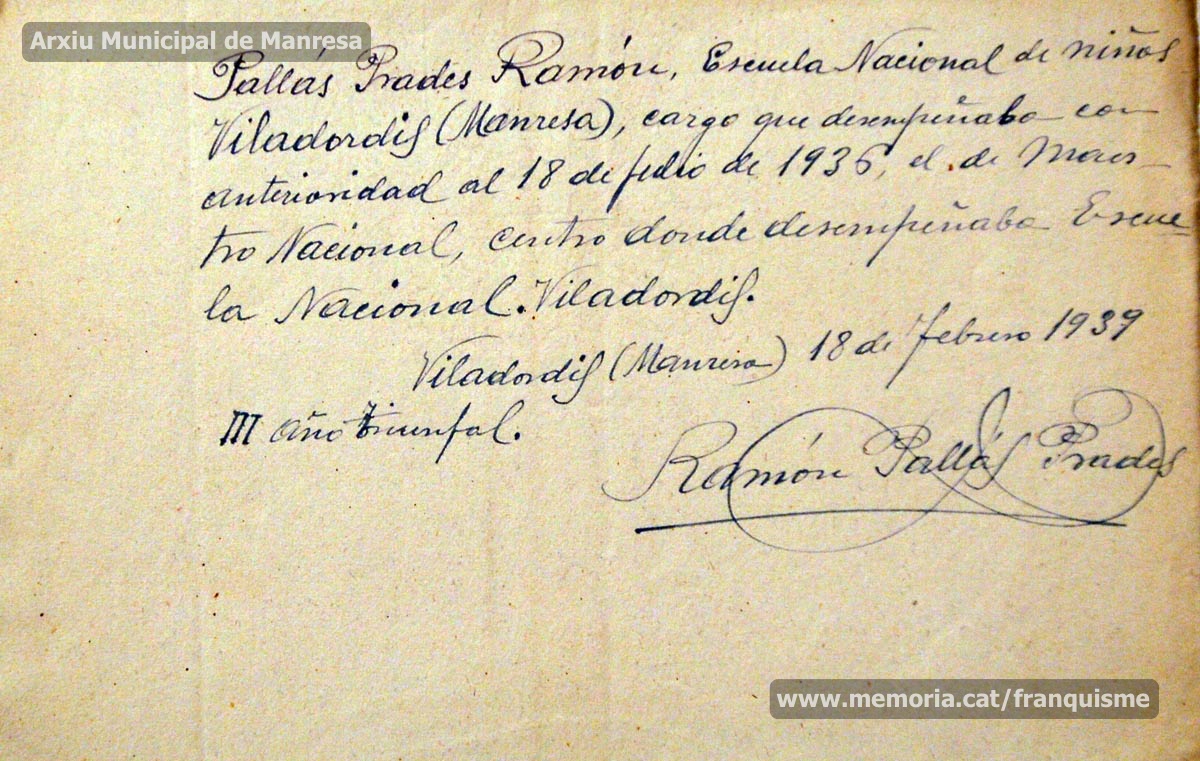 Arxiu Municipal de Manresa
Pallás Prades Ramón, Escuela Nacional de niños
Viladordis (Manresa), cargo que desempeñaba con
anterioridad al 18 de Julio de 1936, el de Maes-
tro Nacional, centro donde desempeñaba Escue-
la Nacional. Viladordis.
Viladordis (Manresa) 18 de Febrero 1939
III Año triunfal.
Ramón Pallás Prades
www.memoria.cat/franquisme